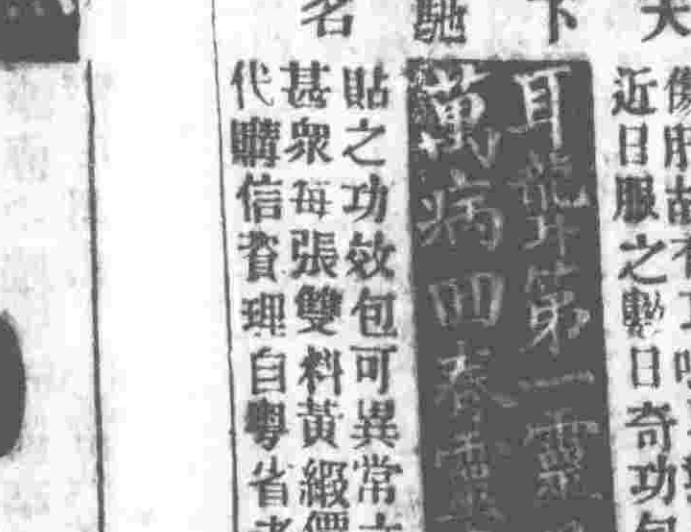 天下馳名
傷肝故有
近日服之數日奇功包
耳聾第一靈
萬病回春靈
貼之功效包可異常
甚眾每張雙料黃緞價
代購信資理自粵省